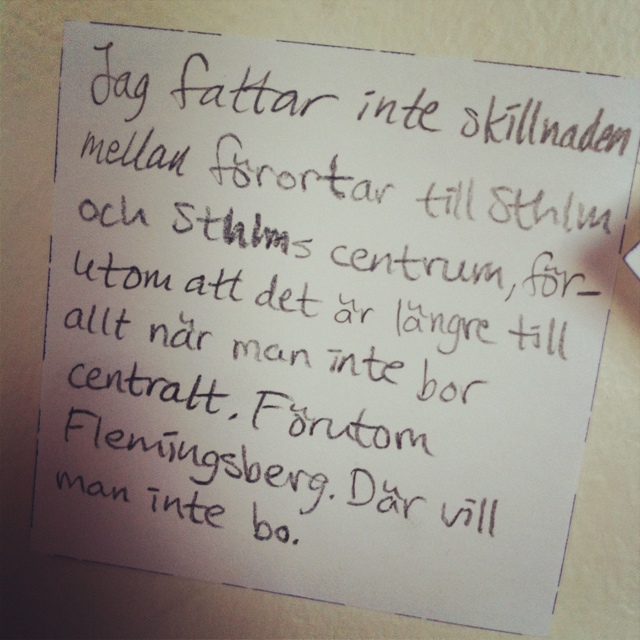 Jag fattar inte skillnaden
mellan förortar till Sthlm
och Sthlms centrum, för-
utom att det är längre till
allt när man inte bor
centralt. Förutom
Flemingsberg. Där vill
man inte bo.